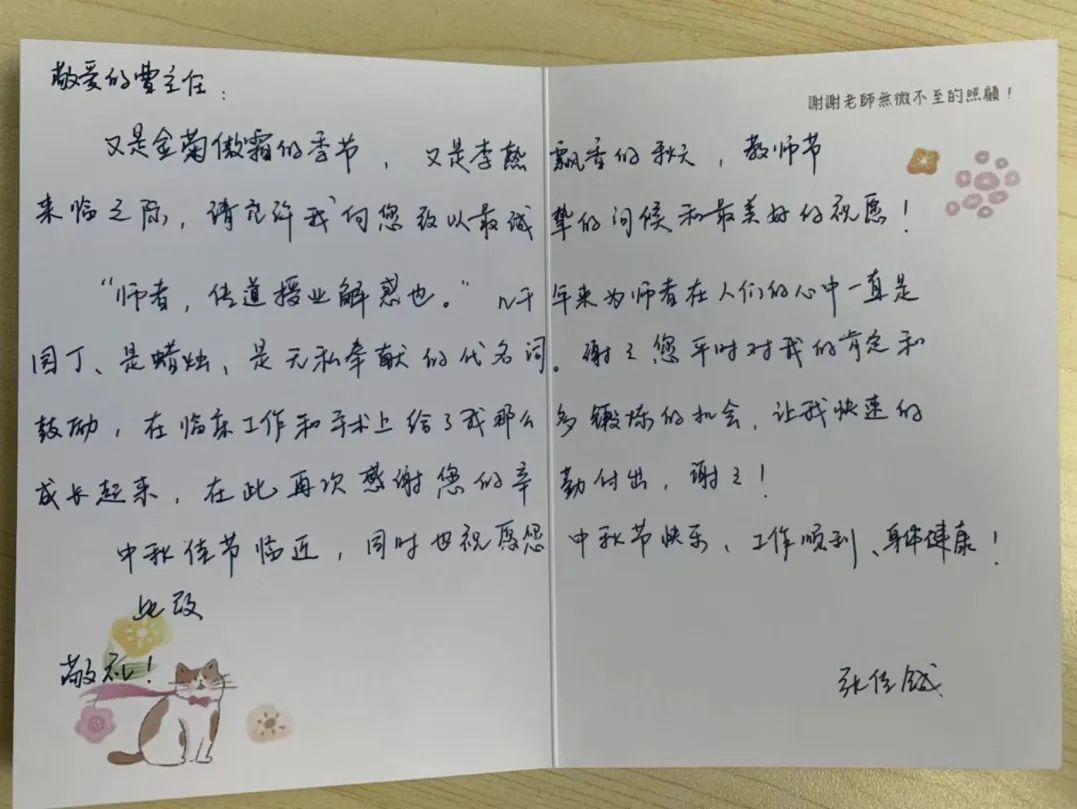 敬爱的费主任：
謝謝老師無微不至的照顧！
又是金菊傲霜的季节，又是李熟飘香的秋天，教师节
来临之际，请允许我向您致以最诚挚的问候和最美好的祝愿！
“师者，传道授业解惑也。”几千年来为师者在人们的心中一直是
园丁、是蜡烛，是无私奉献的代名词。谢谢您平时对我的肯定和
鼓励，在临床工作和手术上给了我那么多锻炼的机会，让我快速的
成长起来，在此再次感谢您的辛勤付出，谢谢！
中秋佳节临近，同时也祝愿您中秋节快乐、工作顺利、身体健康！
此致
敬礼！
张佳